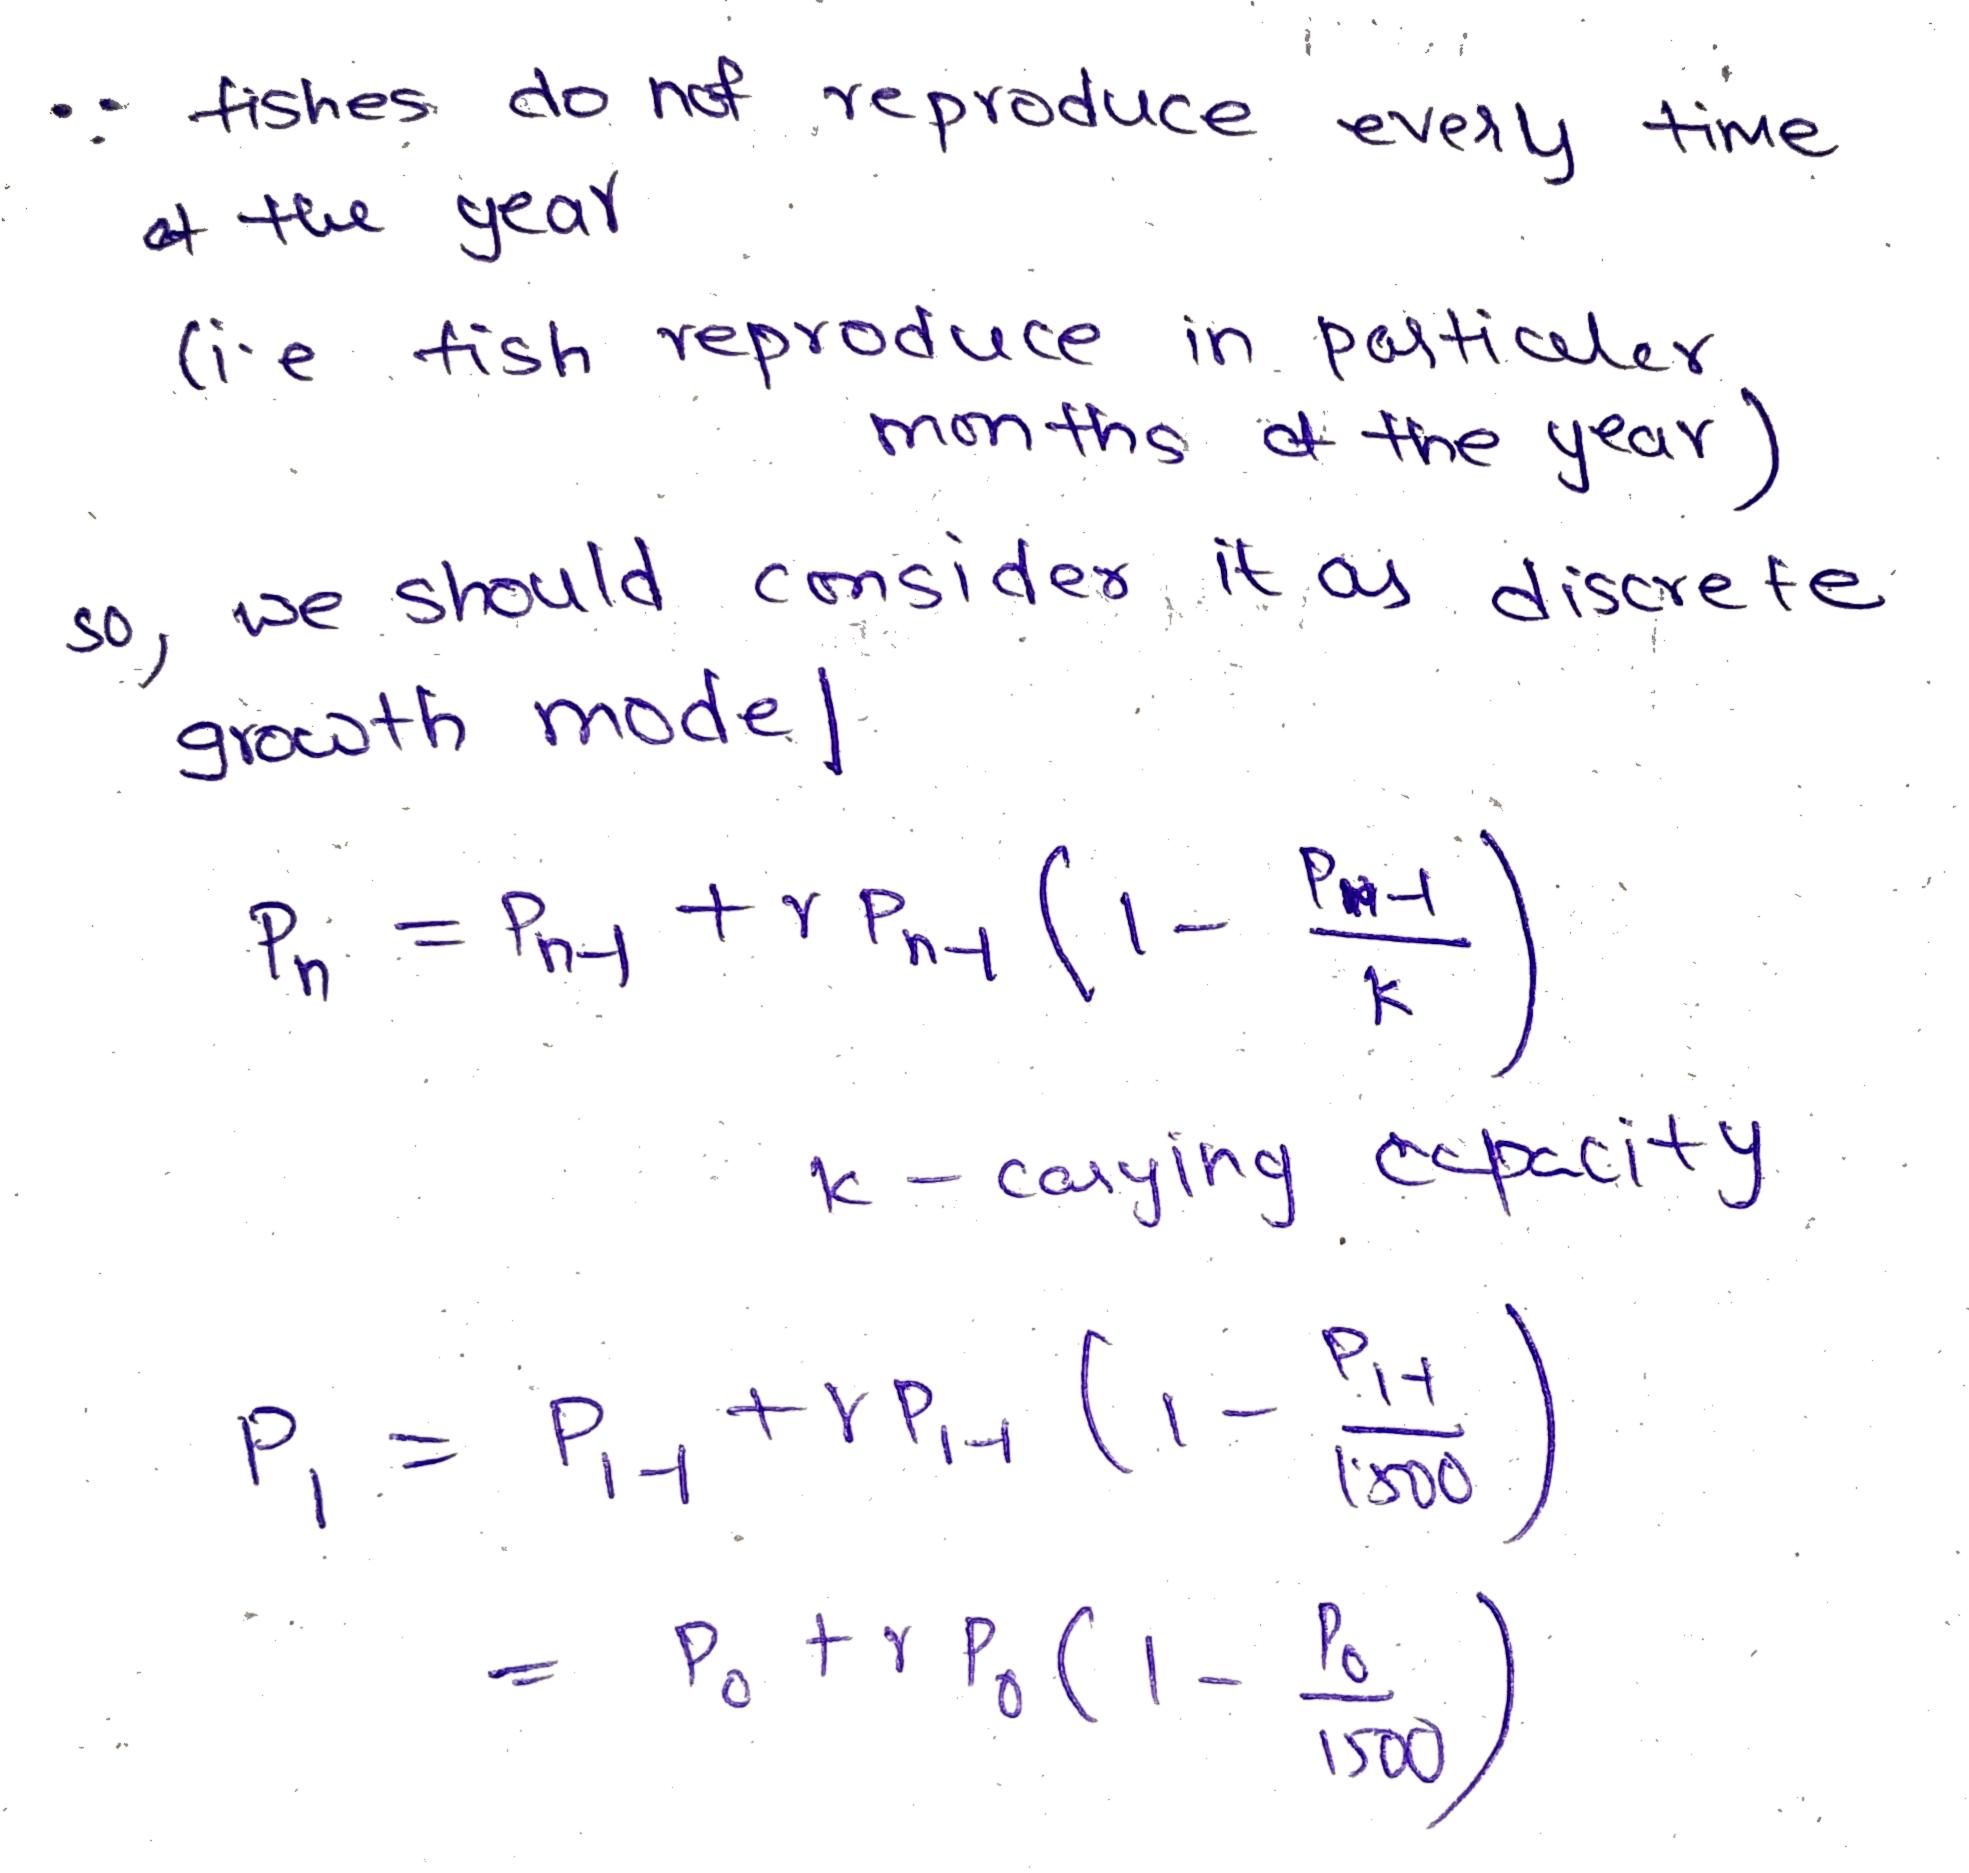 ∵ fishes do not reproduce every time
of the year
(i.e fish reproduce in particular
months of the year)
so, we should consider it as discrete
growth model
Pn = Pn-1 + r Pn-1 (1 - Pn-1/k)
k - carying capacity
P1 = P1-1 + r P1-1 (1 - P1-1/1500)
= P0 + r P0 (1 - P0/1500)